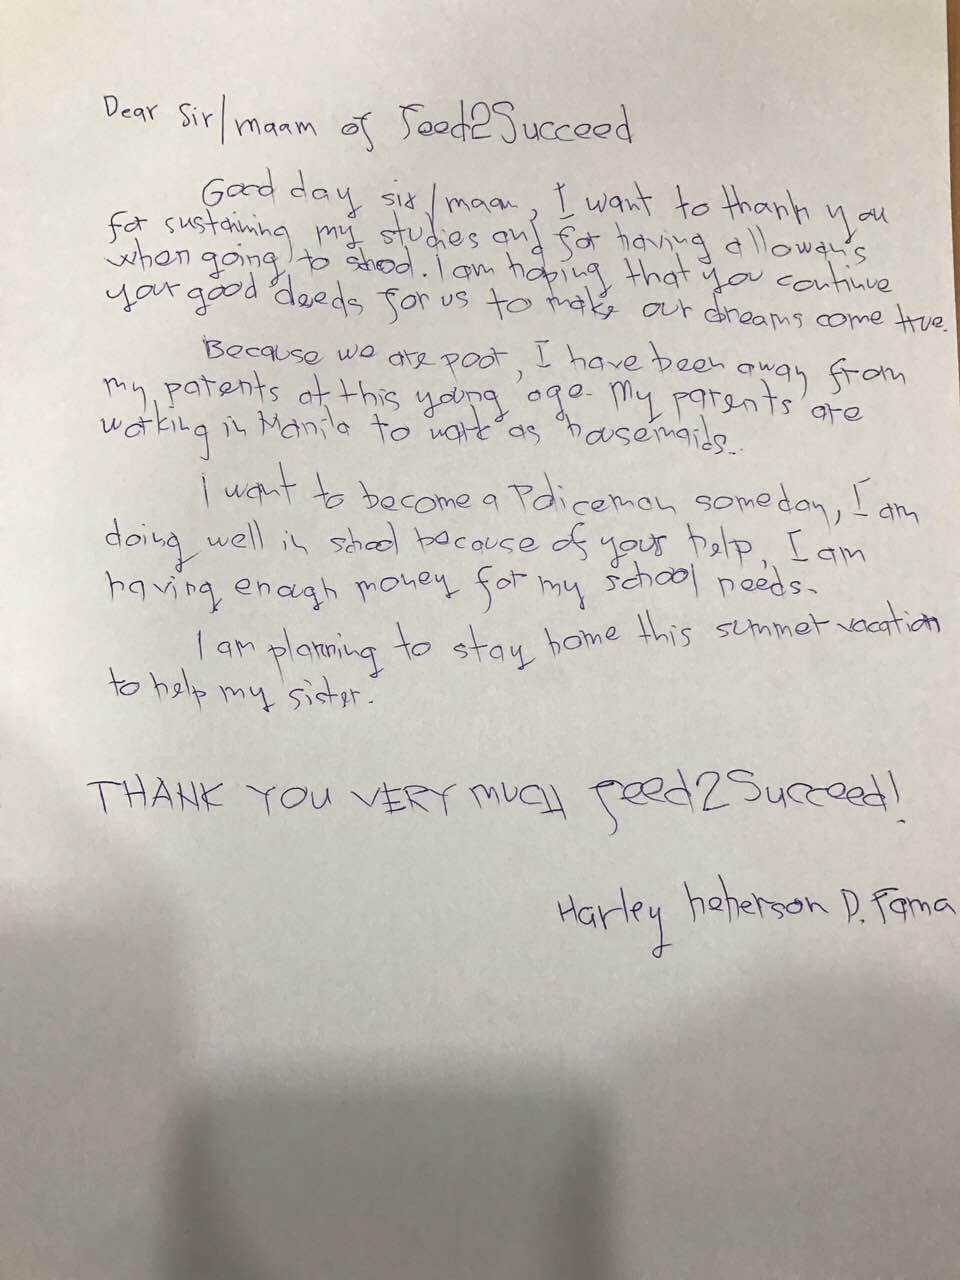 Dear Sir/maam of Feed2Succeed
Good day sir/maam, I want to thank you
for sustaining my studies and for having alloway's
when going to shool. I am hoping that you continue
your good deeds for us to make our dreams come true.
Because we are poor, I have been away from
my parents at this young age. My parents are
working in Manila to work as housemaids.
I want to become a Policeman someday, I am
doing well in shool because of your help, I am
having enough money for my school needs.
I am planning to stay home this summer vacation
to help my sister.
THANK YOU VERY MUCH Feed2Succeed!
Harley heherson D. Fama